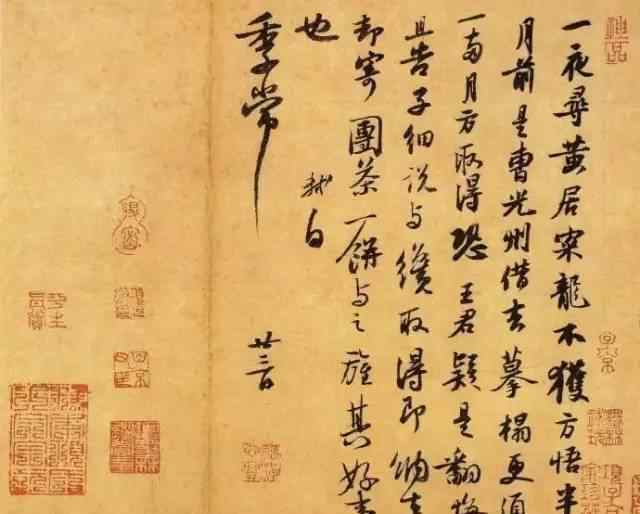 一夜尋黄居寀龍不獲方悟半
月前是曹光州借去摹榻更須
一兩月方取得恐王君疑是翻悔
且告子細說與纔取得即納去
却寄團茶一餅與之旌其好事
也 軾白
季常 廿三日